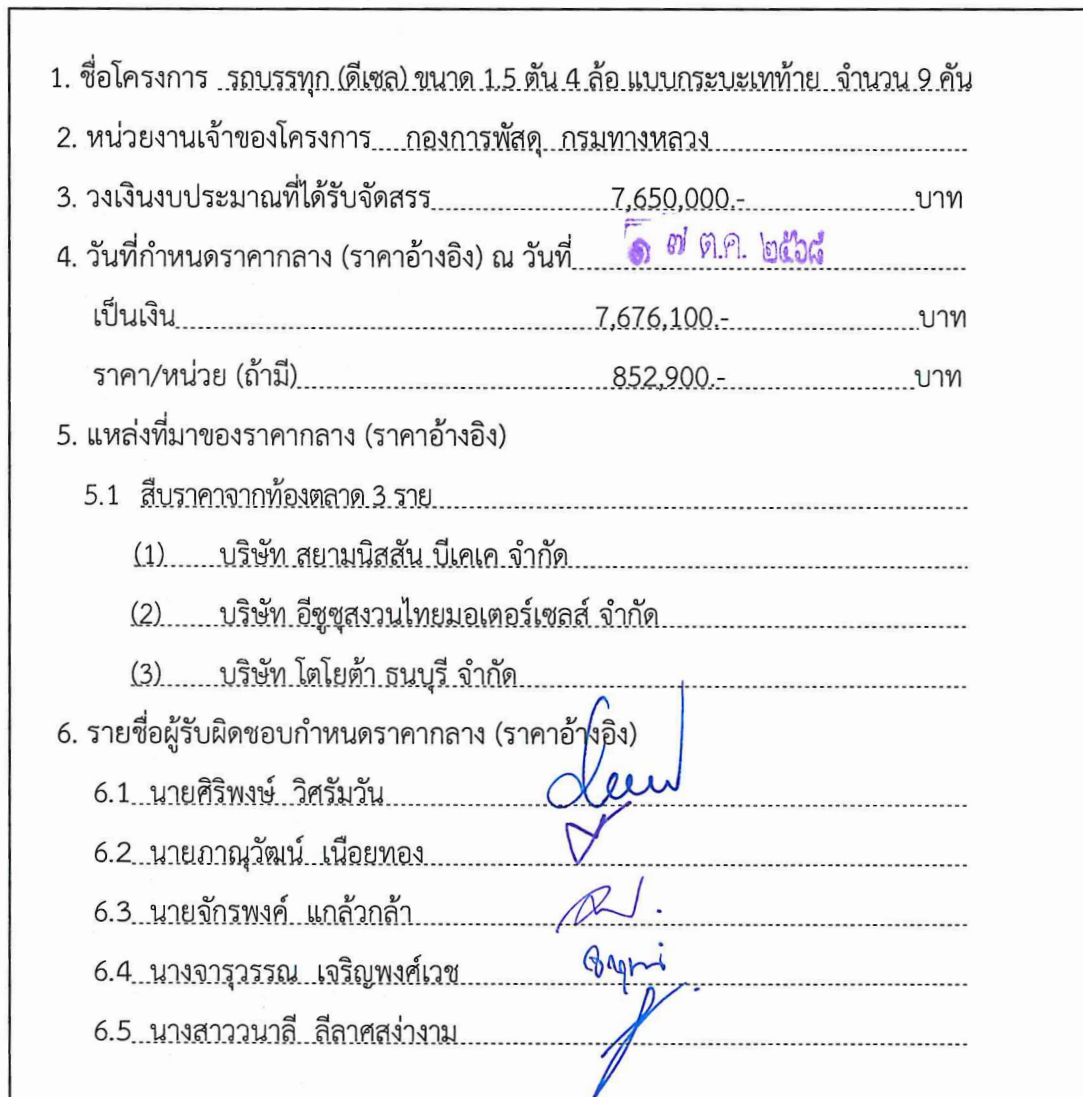 1. ชื่อโครงการ รถบรรทุก (ดีเซล) ขนาด 1.5 ตัน 4 ล้อ แบบกระบะเทท้าย จำนวน 9 คัน
2. หน่วยงานเจ้าของโครงการ กองการพัสดุ กรมทางหลวง
3. วงเงินงบประมาณที่ได้รับจัดสรร 7,650,000.- บาท
4. วันที่กำหนดราคากลาง (ราคาอ้างอิง) ณ วันที่ ๑๗ ต.ค. ๒๕๖๘
เป็นเงิน 7,676,100.- บาท
ราคา/หน่วย (ถ้ามี) 852,900.- บาท
5. แหล่งที่มาของราคากลาง (ราคาอ้างอิง)
5.1 สืบราคาจากท้องตลาด 3 ราย
(1) บริษัท สยามนิสสัน บีเคเค จำกัด
(2) บริษัท อีซูซุสงวนไทยมอเตอร์เซลส์ จำกัด
(3) บริษัท โตโยต้า ธนบุรี จำกัด
6. รายชื่อผู้รับผิดชอบกำหนดราคากลาง (ราคาอ้างอิง)
6.1 นายศิริพงษ์ วิศรัมวัน
6.2 นายภาณุวัฒน์ เนือยทอง
6.3 นายจักรพงค์ แกล้วกล้า
6.4 นางจารุวรรณ เจริญพงศ์เวช
6.5 นางสาววนาลี ลีลาศสง่างาม